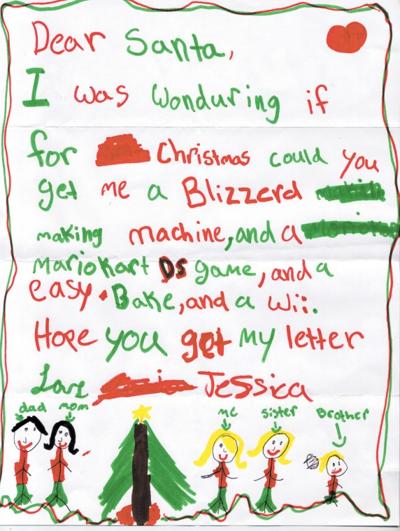 Dear Santa,
I was wonduring if
for Christmas could you
get me a Blizzerd
making machine, and a
Mariokart DS game, and a
easy Bake, and a wii.
Hope you get my letter
Love Jessica
dad mom me sister Brother